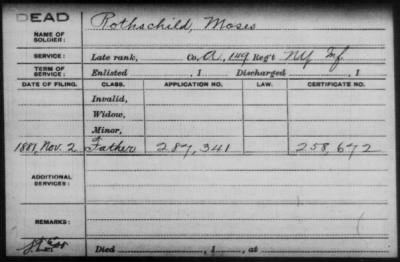 DEAD
NAME OF SOLDIER: Rothschild, Moses
SERVICE: Late rank, Co. A, 149 Reg't NY Inf
TERM OF SERVICE: Enlisted , 1 Discharged , 1
DATE OF FILING. CLASS. APPLICATION NO. LAW. CERTIFICATE NO.
Invalid,
Widow,
Minor,
1881, Nov. 2 Father 287,341 258,672
ADDITIONAL SERVICES:
REMARKS:
Died , 1 , at